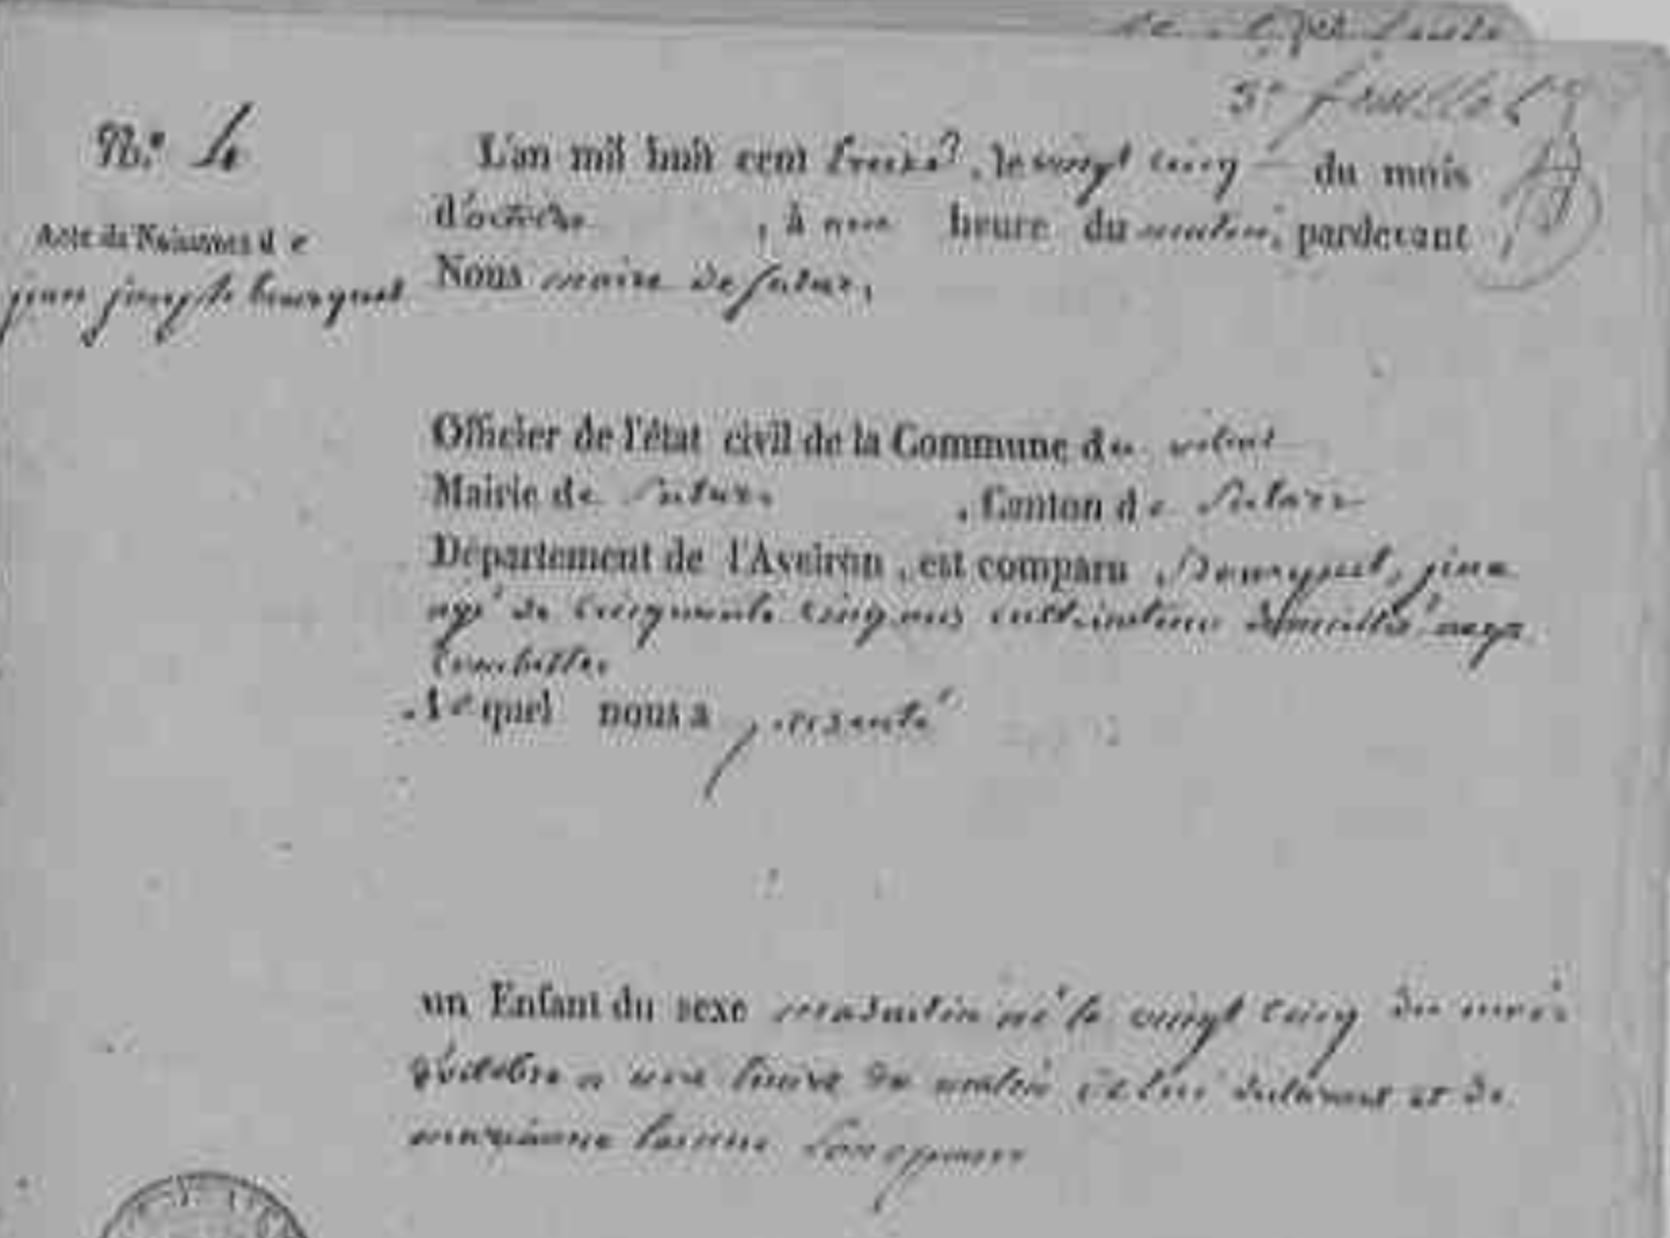 5e feuillet
N.o 4
L'an mil huit cent treize, le vingt cinq du mois
d'octobre, à une heure du matin, pardevant
Nous maire de
Acte de Naissance de
jean joseph bourguet
Officier de l'état civil de la Commune du
Mairie de , Canton de
Département de l'Aveiron, est comparu, Bourguet, jean
agé de cinquante cinq ans cultivateur domicilié
.Lequel nous a presenté
un Enfant du sexe masculin né le vingt cinq du mois
d'octobre a une heure du matin de lui déclarant et de
marianne son epouse